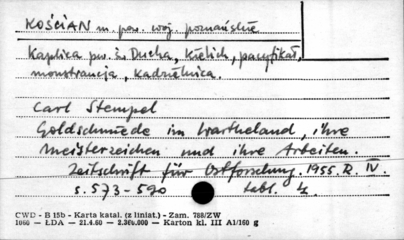 KOŚCIAN m. pow. woj. poznańskie
Kaplica pw. św. Ducha, Kielich, pacyfikał,
monstrancja, kadzielnica.
Carl Stempel
Goldschmiede im Wartheland, ihre
Meisterzeichen und ihre Arbeiten.
Zeitschrift für Ostforschung. 1955. R. IV.
s. 573-590 tabl.
CWD - B 15b - Karta katal. (z liniat.) - Zam. 788/ZW
1066 — ŁDA — 21.4.60 — 2.360.000 — Karton kl. III A1/160 g